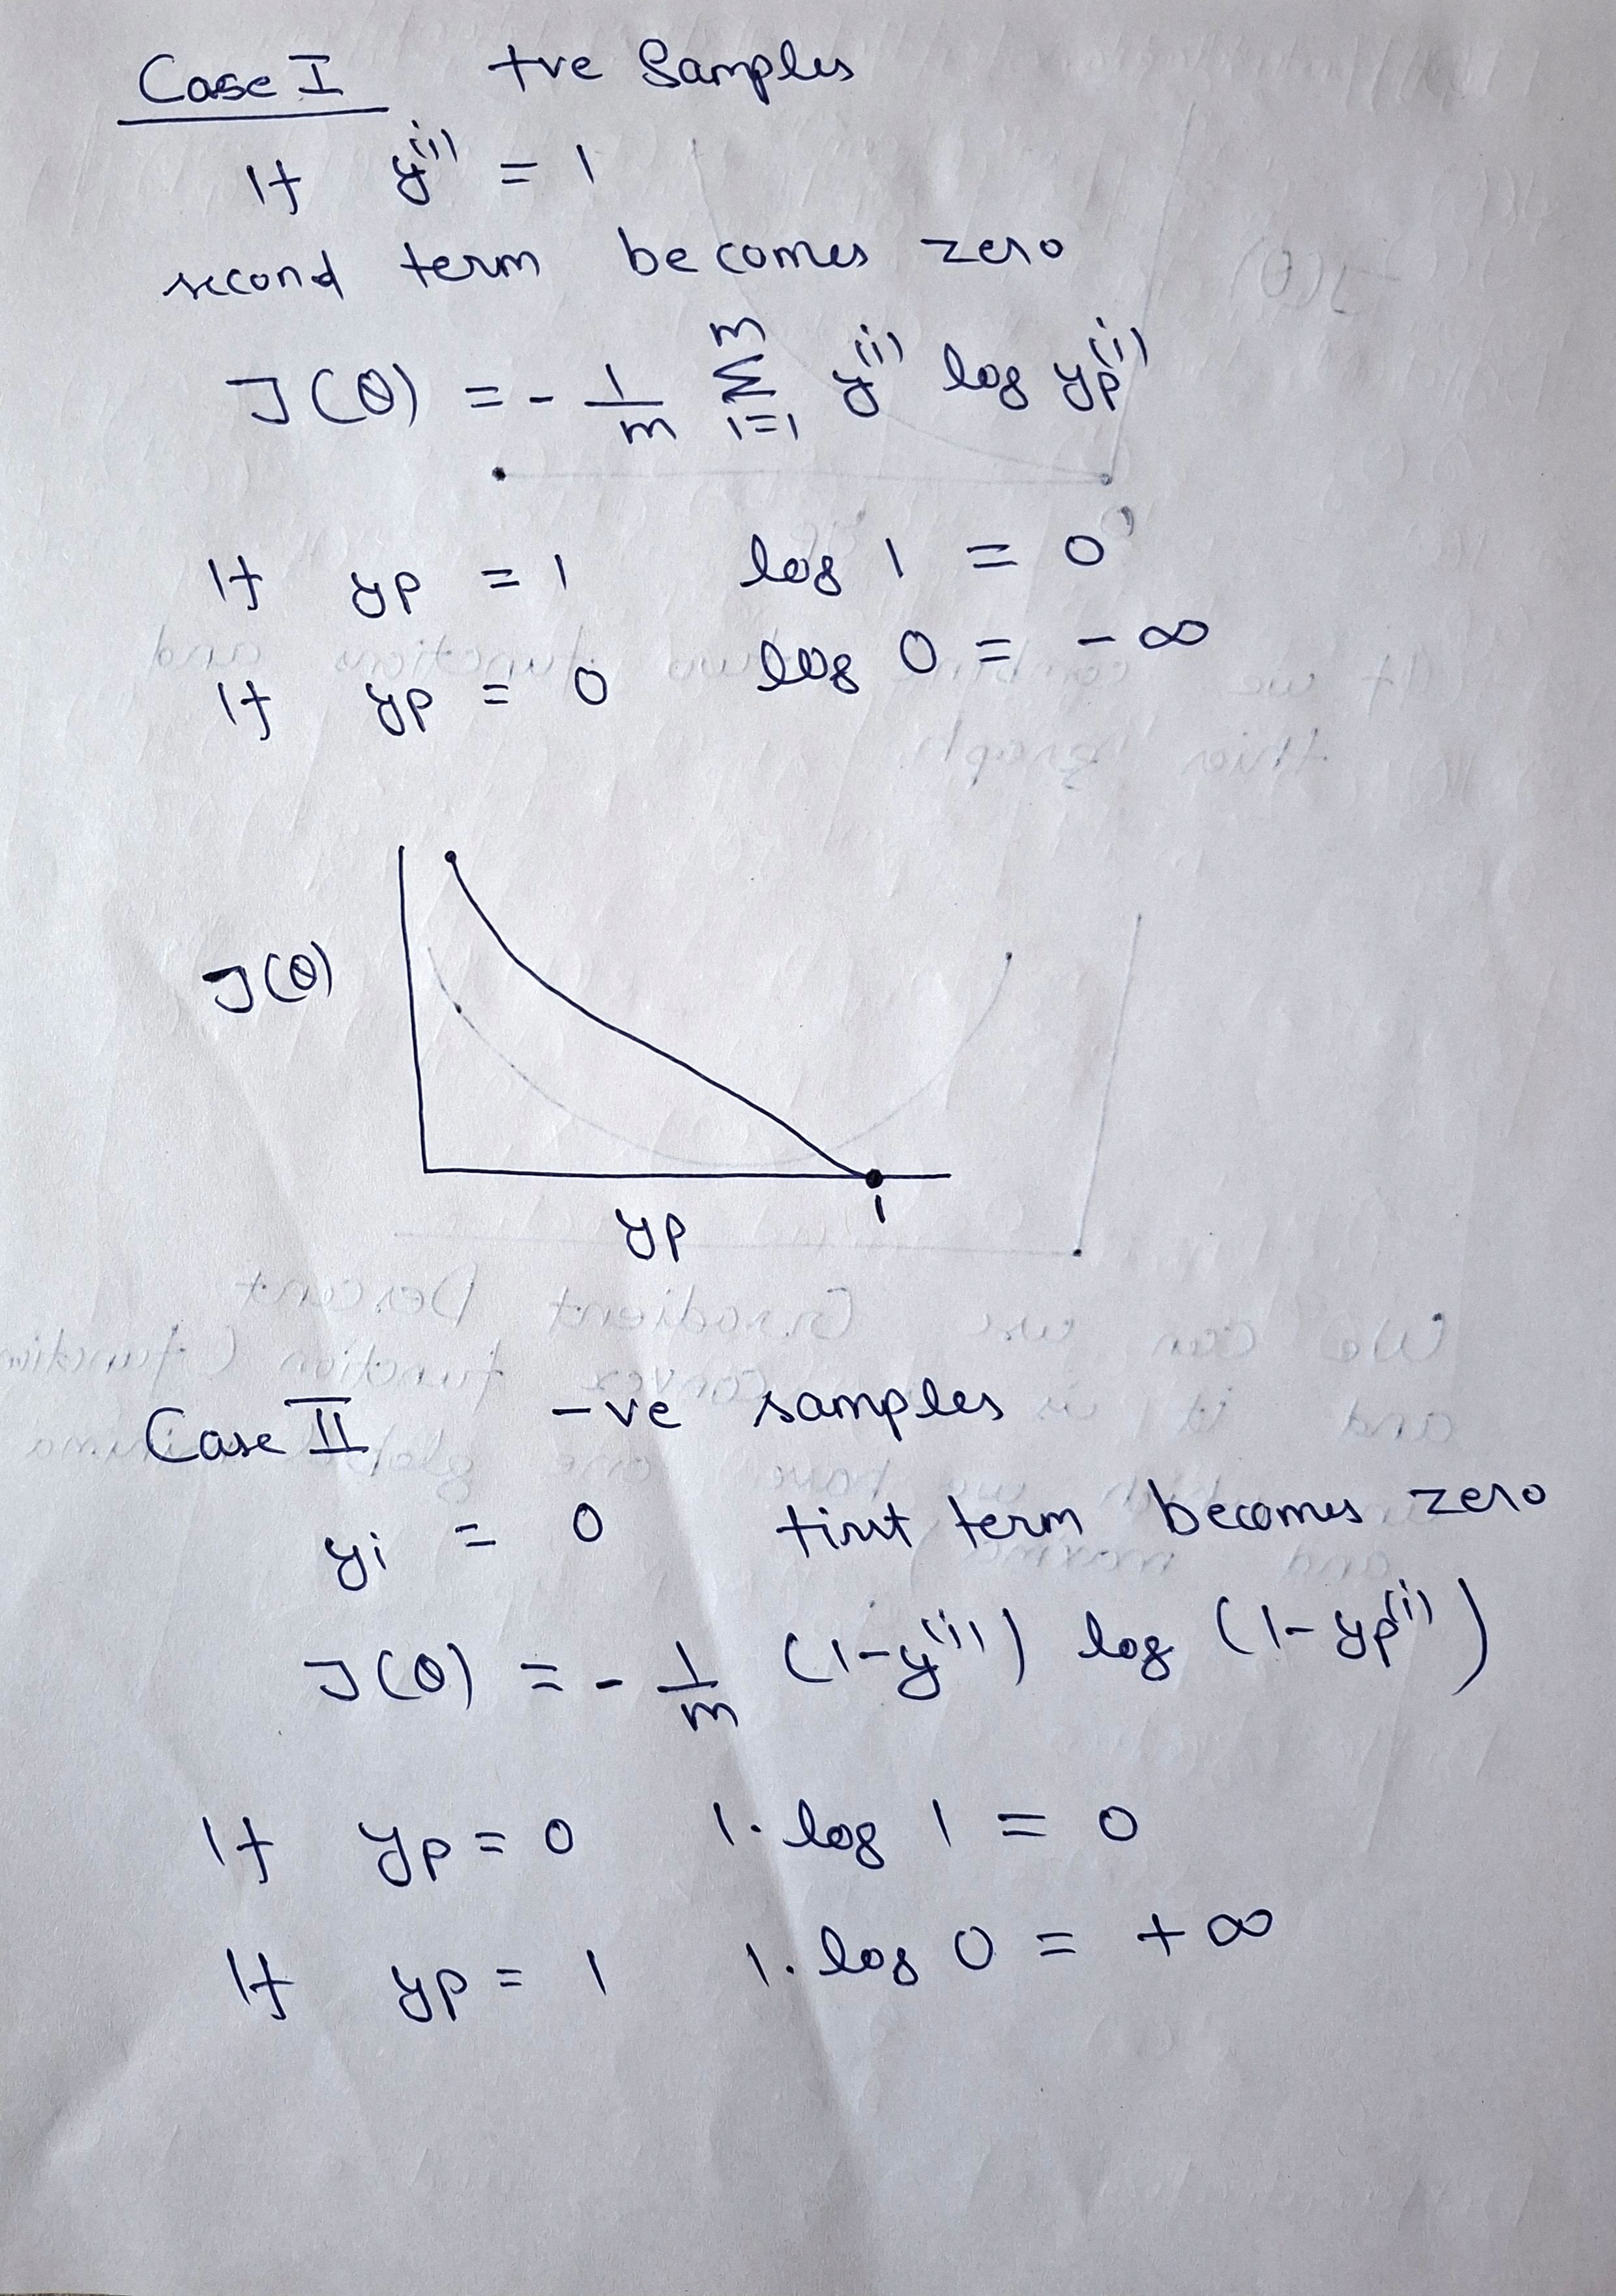 Case I +ve Samples
If y^(i) = 1
second term becomes zero
J(θ) = - 1/m Σ_{i=1}^{m} y^(i) log yp^(i)
If yp = 1 log 1 = 0
If yp = 0 log 0 = - ∞
J(θ)
1
yp
Case II -ve samples
yi = 0 first term becomes zero
J(θ) = - 1/m (1-y^(i)) log (1-yp^(i))
If yp = 0 1. log 1 = 0
If yp = 1 1. log 0 = + ∞